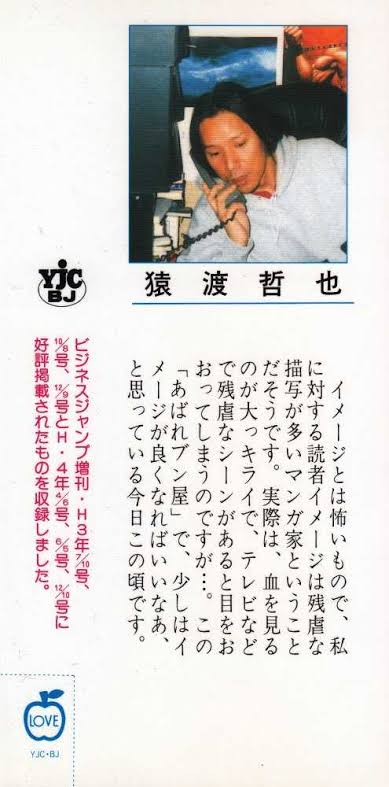 猿渡哲也
YJC
BJ
イメージとは怖いもので、私
に対する読者イメージは残虐な
描写が多いマンガ家ということ
だそうです。実際は、血を見る
のが大っキライで、テレビなど
で残虐なシーンがあると目をお
おってしまうのですが…。この
「あばれブン屋」で、少しはイ
メージが良くなればいいなあ、
と思っている今日この頃です。
ビジネスジャンプ増刊・H3年7/10号、
10/8号、12/9号とH・4年4/6号、6/5号、12/10号に
好評掲載されたものを収録しました。
LOVE
YJC・BJ